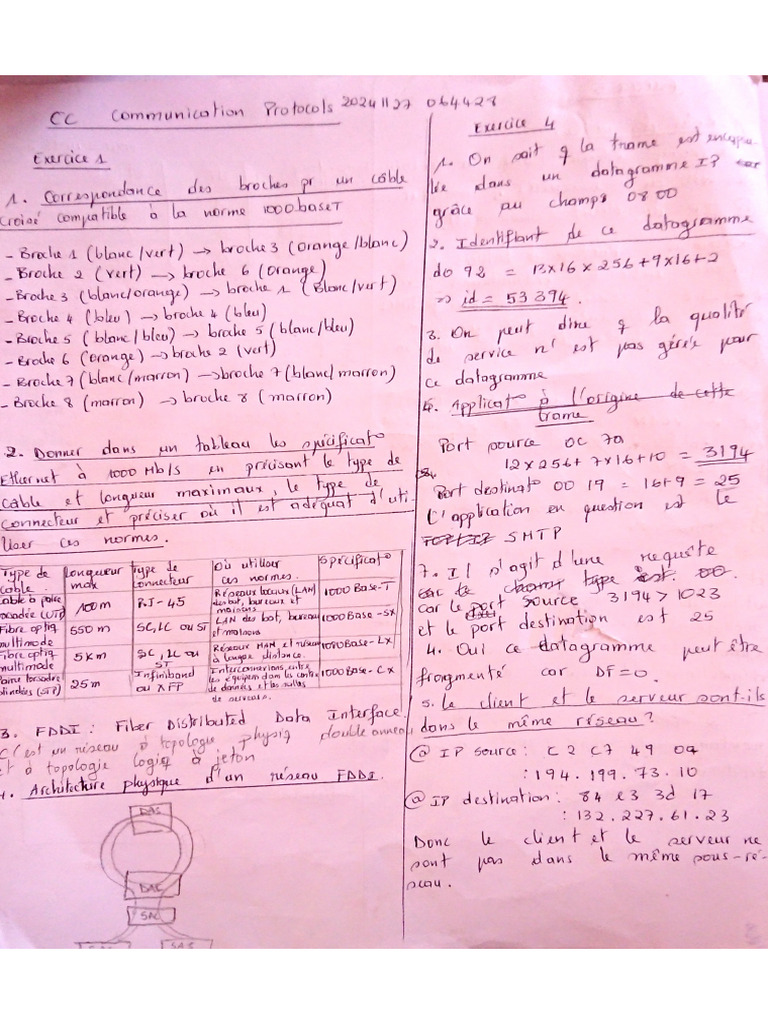 CC Communication Protocols 20241127 064428
Exercice 1
1. Correspondance des broches pr un câble
Croisé compatible à la norme 1000baseT
- Broche 1 (blanc/vert) → broche 3 (orange/blanc)
- Broche 2 (vert) → broche 6 (orange)
- Broche 3 (blanc/orange) → broche 1 (Blanc/vert)
- Broche 4 (bleu) → broche 4 (bleu)
- Broche 5 (blanc/bleu) → broche 5 (blanc/bleu)
- Broche 6 (orange) → broche 2 (vert)
- Broche 7 (blanc/marron) → broche 7 (blanc/marron)
- Broche 8 (marron) → broche 8 (marron)
2. Donner dans un tableau les spécificat°
Ethernet à 1000 Mb/s en précisant le type de
cable et longueur maximaux, le type de
connecteur et préciser où il est adéquat d'uti
liser ces normes.
Type de cable | Longueur max | Type de connecteur | Où utiliser ces normes. | Spécificat°
Cable à paire torsadée (UTP) | 100m | RJ-45 | Réseaux locaux (LAN) des bat, bureaux et maisons | 1000 Base-T
Fibre optiq multimode | 550 m | SC, LC ou ST | LAN des bat, bureau et maisons | 1000Base-SX
Fibre optiq multimode | 5 Km | SC, LC ou ST | Réseaux MAN et réseau à longue distance. | 1000Base-LX
Paire torsadée blindées (STP) | 25 m | Infiniband ou XFP | Interconnexions entre les équipem dans les centre de données et les salles de serveurs. | 1000Base-CX
3. FDDI : Fiber Distributed Data Interface.
C'est un réseau à topologie physiq double anneau
et à topologie logiq à jeton
4. Architecture physique d'un réseau FDDI.
DAC
DAC
SAC
SAS
SAS
Exercice 4
1. On sait q la trame est encapsu
lée dans un datagramme IP car
grâce au champs 08 00
2. Identifiant de ce datagramme
d0 92 = 13x16x256+9x16+2
=> id = 53 394.
3. On peut dire q la qualité
de service n'est pas gérée pour
ce datagramme
6. Applicat° à l'origine de cette
trame
Port source 0C 7a
12x256+7x16+10 = 3194
Port destinat° 00 19 = 16+9 = 25
L'application en question est le
SMTP
7. Il s'agit d'une requête
car le port source 3194 > 1023
et le port destination est 25
4. Oui ce datagramme peut être
fragmenté car DF=0.
5. Le client et le serveur sont-ils
dans le même réseau?
@ IP source : C2 C7 49 0a
: 194.199.73.10
@ IP destination : 84 e3 3d 17
: 132.227.61.23
Donc le client et le serveur ne
sont pas dans le même sous-ré-
seau.